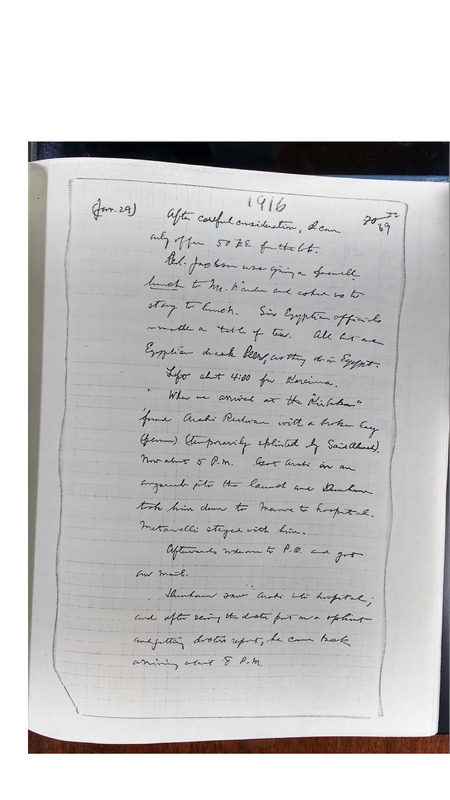 1916
(Jan. 29)
After careful consideration, I can
only offer 50 £E for the lot.
Col. Jackson was giving a farewell
lunch to Mr. and asked us to
stay to lunch. Six Egyptian officials
a table of ten. All but one
Egyptian drank beer, as they do in Egypt.
Left about 4:00 for Kereima.
"When we arrived at the "
found Arabi Redwan with a broken leg
(femur) (temporarily splinted by Said Ahmed).
Now about 5 P.M. Got Arabi on an
into the launch and Dunham
took him down to Merowe to hospital.
Metawelli stayed with him.
Afterwards rode on to P.O. and got
our mail.
Dunham saw Arabi into hospital;
and after seeing the doctor put on a splint
and getting doctor's report, he came back
arriving about 8 P.M.